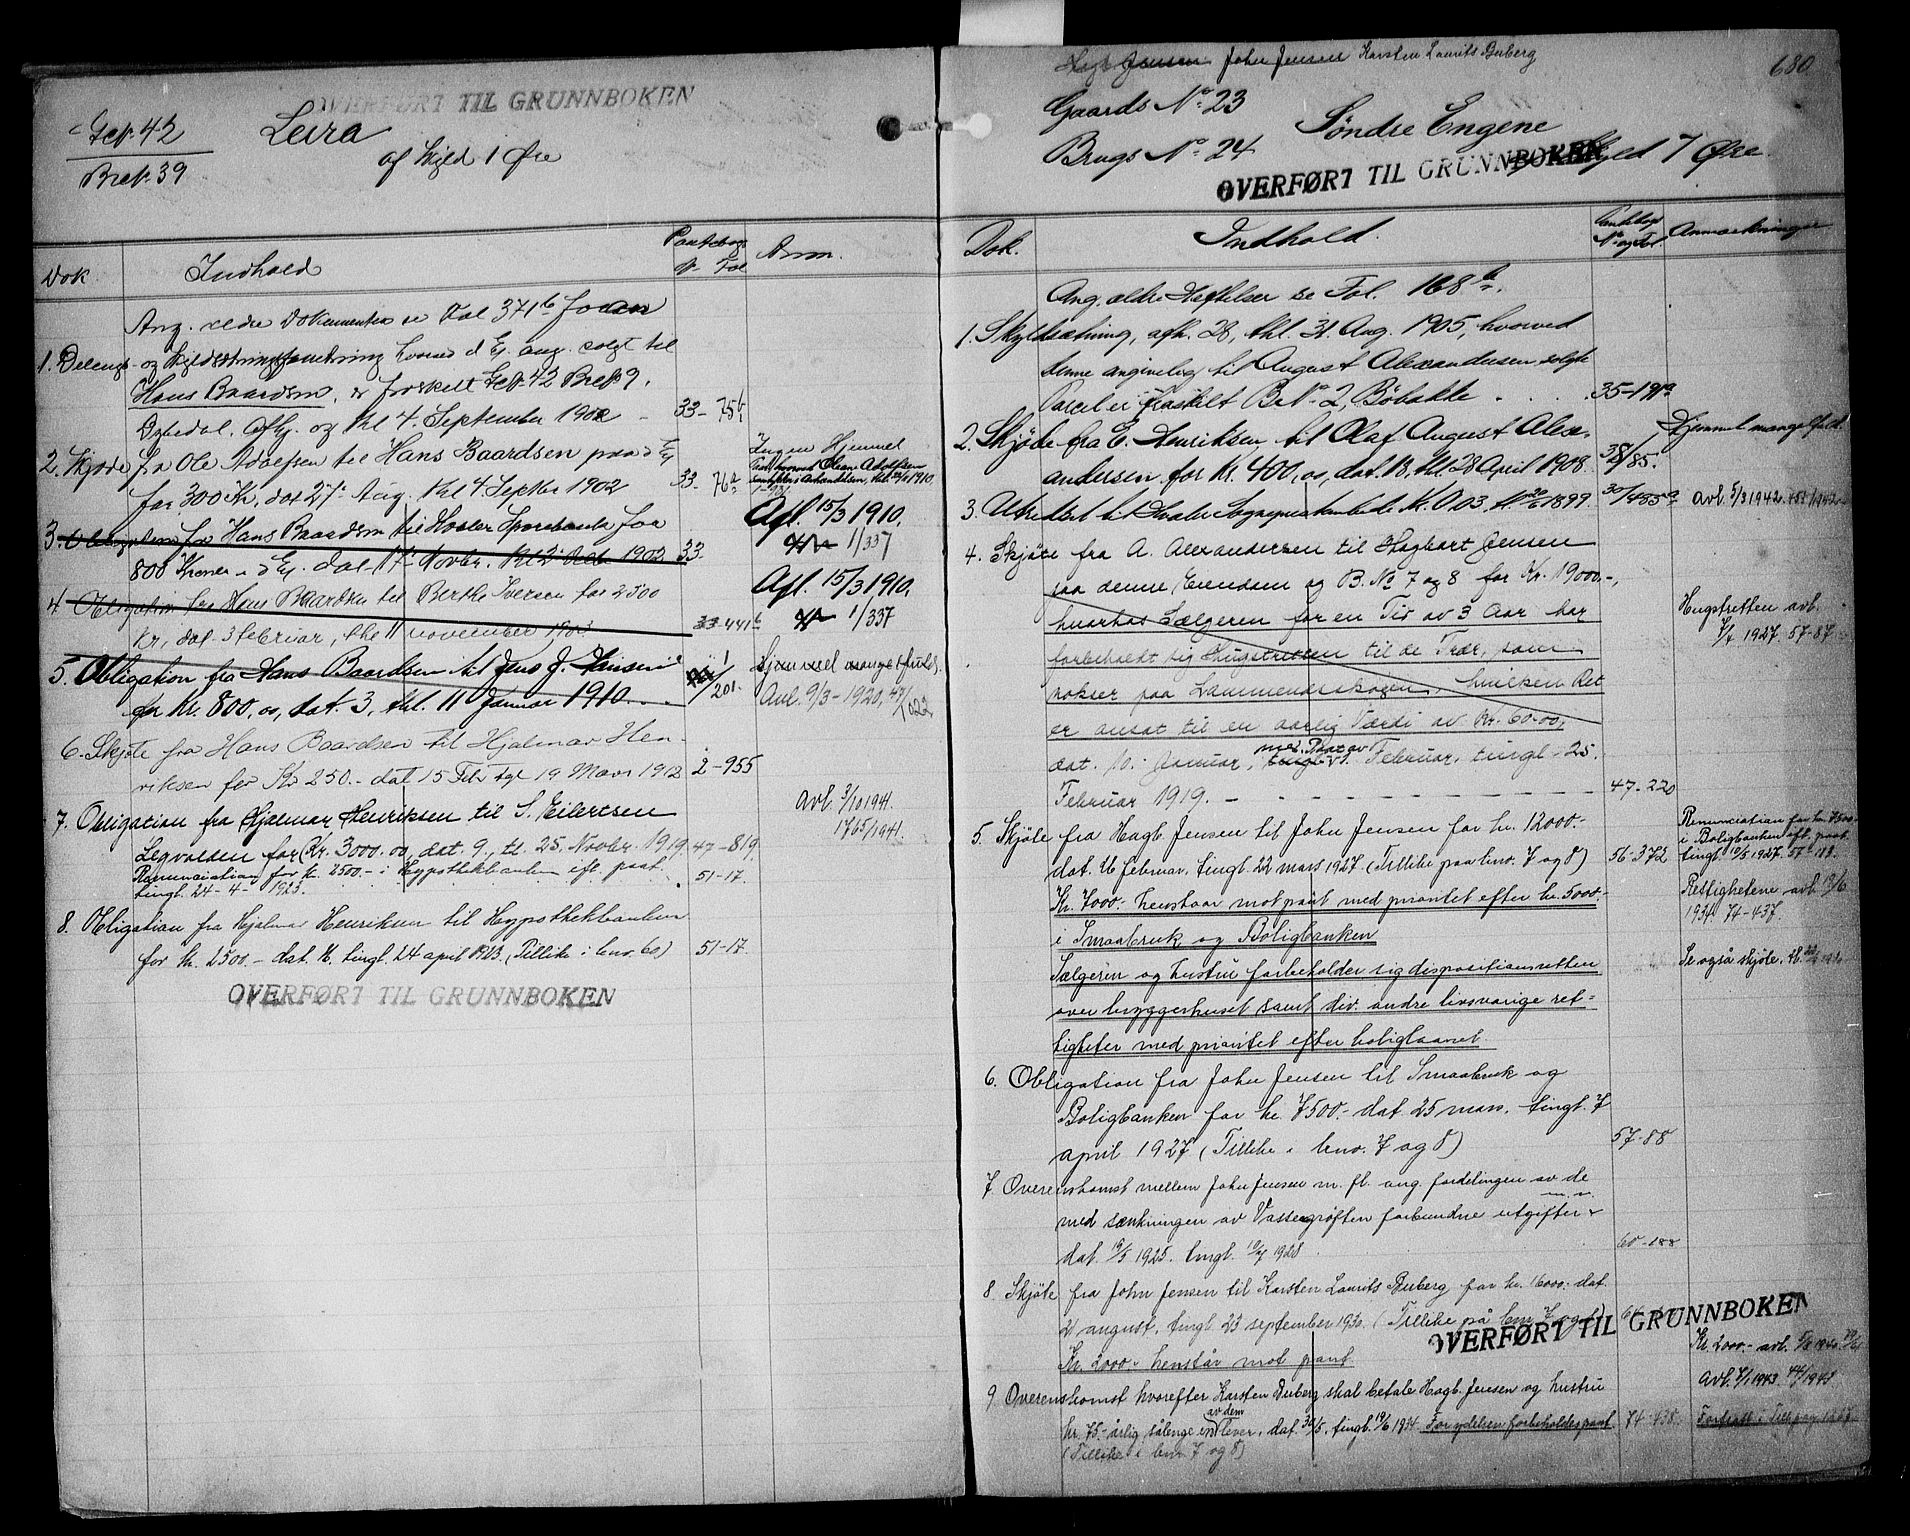 OVERFØRT TIL GRUNNBOKEN
Leira
af Skyld 1 Øre
Dok
Indhold
Pantebog
N. Fol
Anm.
Ang. ældre Dokumenter se Fol 371b
1. Delings- og Skyldsætningsforretning hvorved d Ej. ang. solgt til
Hans Baardsen, er fraskilt
Dybedal. Afhj. og thl 4. September 1902
33- 75b
2. Skjøde fra Ole Adolfsen til Hans Baardsen paa d Ej
for 300 Kr, dat 27 Aug. thl 4 Septbr 1902
33- 76a
Ingen Hjemmel
3. Obligation fra Hans Baardsen til Sparebank for
800 Kroner i d Ej. dat 17 Novbr. thl 2 1902
33.
Afl. 15/3 1910.
1/337
4 Obligation fra Hans Baardsen til Berthe Iversen for 2500
Kr, dat 3 februar, thl 11 november 1903
33-441b
Afl. 15/3 1910.
1/337
5. Obligation fra Hans Baardsen til Jens J. Hansen
for Kr. 800,00, dat. 3, thl. 11 Januar 1910.
1/201.
Hjemmel mangelfuld.
Avl. 9/3-1920, 47/1022
6. Skjøte fra Hans Baardsen til Hjalmar Hen-
riksen for Kr 250.- dat 15 Feb tgl 19 Mars 1912
2-955
7. Obligation fra Hjalmar Henriksen til S. Eilertsen
for Kr. 3000.00, dat. 9., tl. 25. Novbr. 1919
47-819
Avl. 3/10 1941.
1765/1941.
Renunciation for kr. 2500.- i Hypothekbanken eft. pant.
tingl. 24-4-1923.
51-17.
8. Obligation fra Hjalmar Henriksen til Hypothekbanken
for kr. 2500.- dat. 16. tingl. 24 april 1923. (Tillike i bno. 60)
51-17.
OVERFØRT TIL GRUNNBOKEN
Hagb. Jensen John Jensen Karsten Laurits Buberg
680
Gaards No. 23
Brugs No. 24
Søndre Engene
Skyld 7 Øre.
OVERFØRT TIL GRUNNBOKEN
Dok.
Indhold.
Pantebog
No og Fol.
Anmærkninger
Ang. ældre Hæftelser se Fol. 168b.
1. Skyldsætning, afh. 28, thl. 31. Aug. 1905, hvorved
denne angivelig til August Alexandersen solgte
Parcel er fraskilt B. No. 2, Bøbakke
35-191a
2. Skjøde fra E. Henriksen til Olaf August Alex-
andersen for Kr. 400,00, dat. 18, thl. 28 April 1908.
38/85.
Hjemmel mangelfuld.
3. Utredset til Hvaler Sogneprestembede Kr. 0.03, tl. 20/6 1899.
30/455a
Avl. 5/3 1942. 453/1942
4. Skjøte fra A. Alexandersen til Hagbart Jensen
paa denne Eiendom og B. No 7 og 8 for Kr. 19000.-,
hvorhos Sælgeren for en Tid av 3 Aar har
forbeholdt sig Hugstretten til de Trær, som
vokser paa Lammenesskogen, hvilken Ret
er ansat til en aarlig Værdi av Kr. 60.00,
dat. 10. Januar, med Paat. av 1. Februar, tingl. 25.
Februar 1919.
47-220
Hugstretten avl.
7/4 1927. 57-87
5. Skjøte fra Hagb. Jensen til John Jensen for kr. 12000.-
dat. 16 februar, tingl. 22 mars 1927 (Tillike paa bno. 7 og 8)
56-372
Kr. 7000.- henstaar mot pant med prioritet efter kr. 5000.-
i Smaabruk og Boligbanken
Sælgeren og hustru forbeholder sig dispositionsretten
over bryggerhuset samt div. andre livsvarige ret-
tigheter med prioritet efter boliglaanet
Renunciation for kr. 7500.-
i Boligbanken eft. paat.
tingl. 10/5 1927. 57-133
Rettighetene avl. 19/6
1934 74-437.
Se også skjøte, tl.
6. Obligation fra John Jensen til Smaabruk og
Boligbanken for kr. 7500.- dat. 25 mars, tingl. 7
april 1927 (Tillike i bno. 7 og 8)
57-88
7 Overenskomst mellem John Jensen m. fl. ang. fordelingen av de
med sænkningen av Vassegrøften forbundne utgifter
dat. 16/3 1925. tingl. 10/7 1928
60-188
8 Skjøte fra John Jensen til Karsten Laurits Buberg for kr. 16000.- dat.
21 august, tingl. 23 september 1930. (Tillike på bnr. 7 og 8)
Kr. 2000.- henstår mot pant
OVERFØRT TIL GRUNNBOKEN
Kr. 2000.- avl.
9 Overenskomst hvorefter Karsten Buberg skal betale Hagb. Jensen og hustru
kr. 75.- årlig sålenge en av dem lever, dat. 30/5, tingl. 19/6 1934. For ydelsen forbeholdes pant
(Tillike i bnr. 7 og 8)
74-438.
Avl. 7/1 1943 44/1943
Fortsatt i Till.